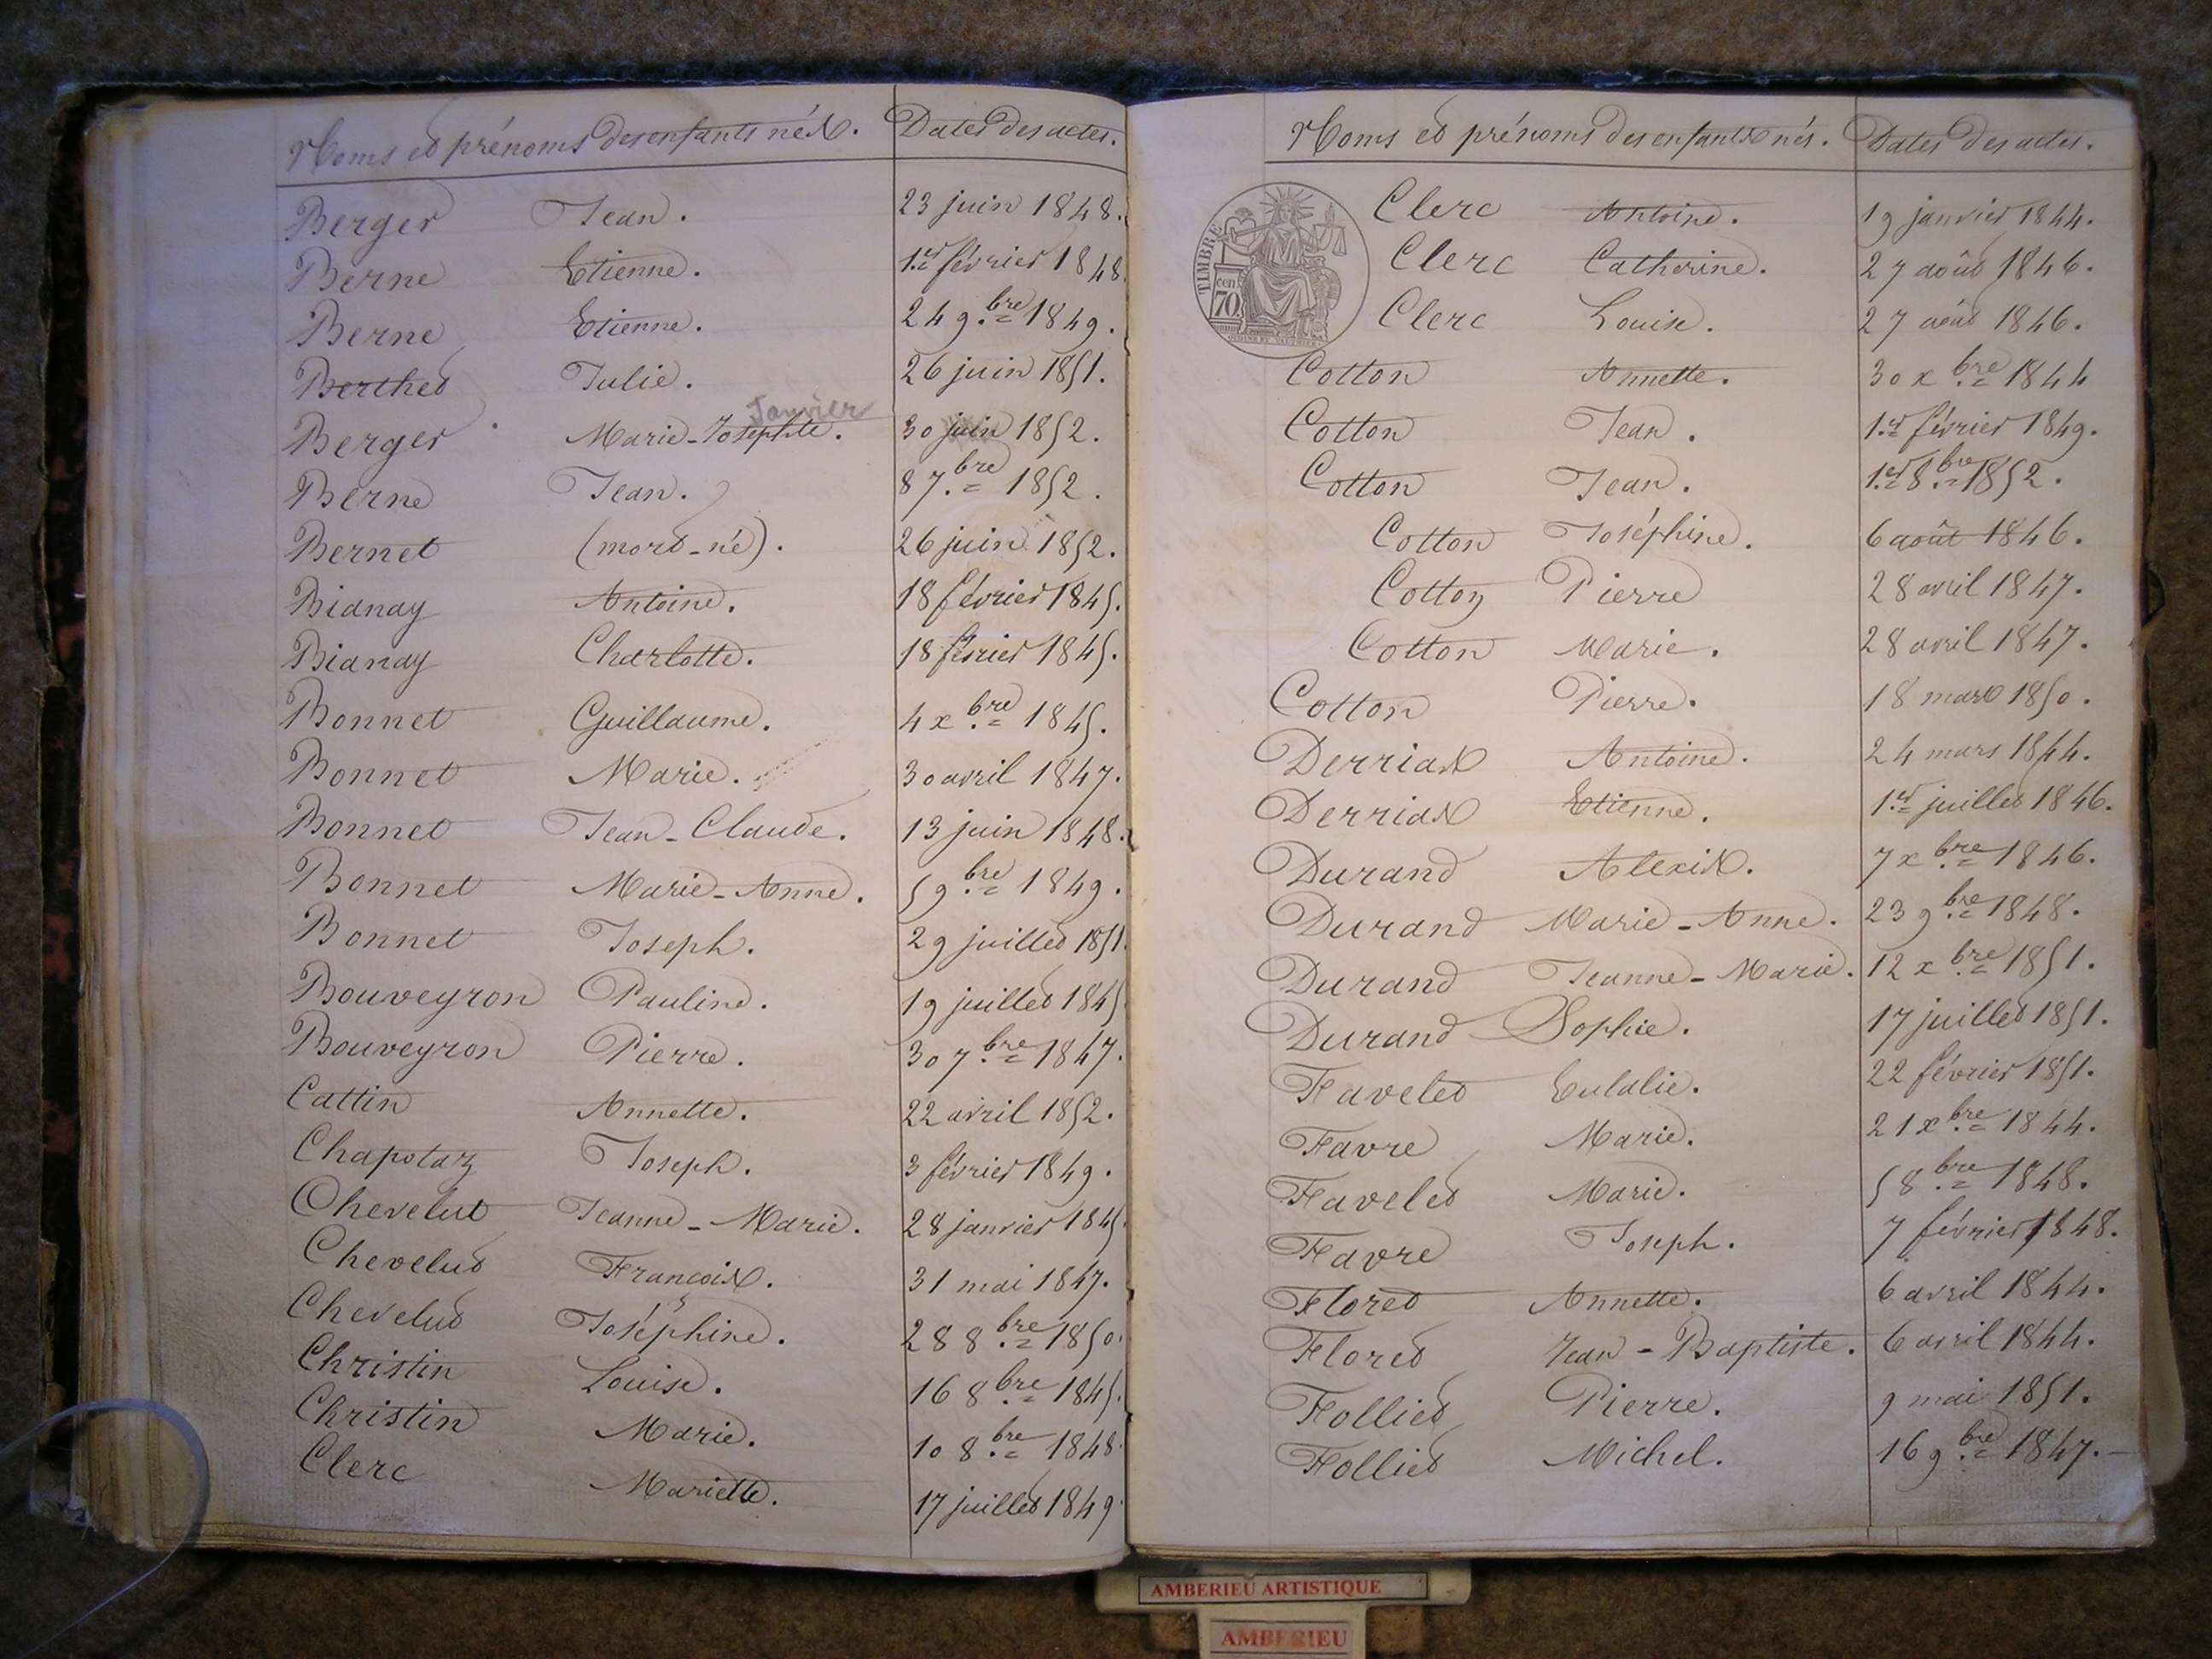 Noms et prénoms des enfants nés. Dates des actes.
Berger Jean. 23 juin 1848.
Berne Etienne. 1.er février 1848.
Berne Etienne. 24 9.bre 1849.
Berthet Julie. 26 juin 1851.
Janvier
Berger Marie-Josephte. 30 juin 1852.
Berne Jean. 8 7.bre 1852.
Bernet (mort-né). 26 juin 1852.
Bianay Antoine. 18 février 1845.
Bianay Charlotte. 18 février 1845.
Bonnet Guillaume. 4 x.bre 1845.
Bonnet Marie. 30 avril 1847.
Bonnet Jean-Claude. 13 juin 1848.
Bonnet Marie-Anne. 5 9.bre 1849.
Bonnet Joseph. 29 juillet 1851.
Bouveyron Pauline. 19 juillet 1845
Bouveyron Pierre. 30 7.bre 1847.
Cattin Annette. 22 avril 1852.
Chapotaz Joseph. 3 février 1849.
Chevelut Jeanne-Marie. 28 janvier 1845
Chevelut François. 31 mai 1847.
Chevelut Joséphine. 28 8.bre 1850.
Christin Louise. 16 8.bre 1845.
Christin Marie. 10 8.bre 1848.
Clerc Mariette. 17 juillet 1849
Noms et prénoms des enfants nés. Dates des actes.
TIMBRE
70 cen
Clerc Antoine. 19 janvier 1844.
Clerc Catherine. 27 août 1846.
Clerc Louise. 27 août 1846.
Cotton Annette. 30 x.bre 1844
Cotton Jean. 1.er février 1849.
Cotton Jean. 1.er 8.bre 1852.
Cotton Joséphine. 6 août 1846.
Cotton Pierre 28 avril 1847.
Cotton Marie. 28 avril 1847.
Cotton Pierre. 18 mars 1850.
Derrias Antoine. 24 mars 1844.
Derrias Etienne. 1.er juillet 1846.
Durand Alexis. 7 x.bre 1846.
Durand Marie-Anne. 23 9.bre 1848.
Durand Jeanne-Marie. 12 x.bre 1851.
Durand Sophie. 17 juillet 1851.
Favelet Eulalie. 22 février 1851.
Favre Marie. 21 x.bre 1844.
Favelet Marie. 5 8.bre 1848.
Favre Joseph. 7 février 1848.
Floret Annette. 6 avril 1844.
Floret Jean-Baptiste. 6 avril 1844.
Folliet Pierre. 9 mai 1851.
Folliet Michel. 16 9.bre 1847.
AMBERIEU ARTISTIQUE
AMBERIEU